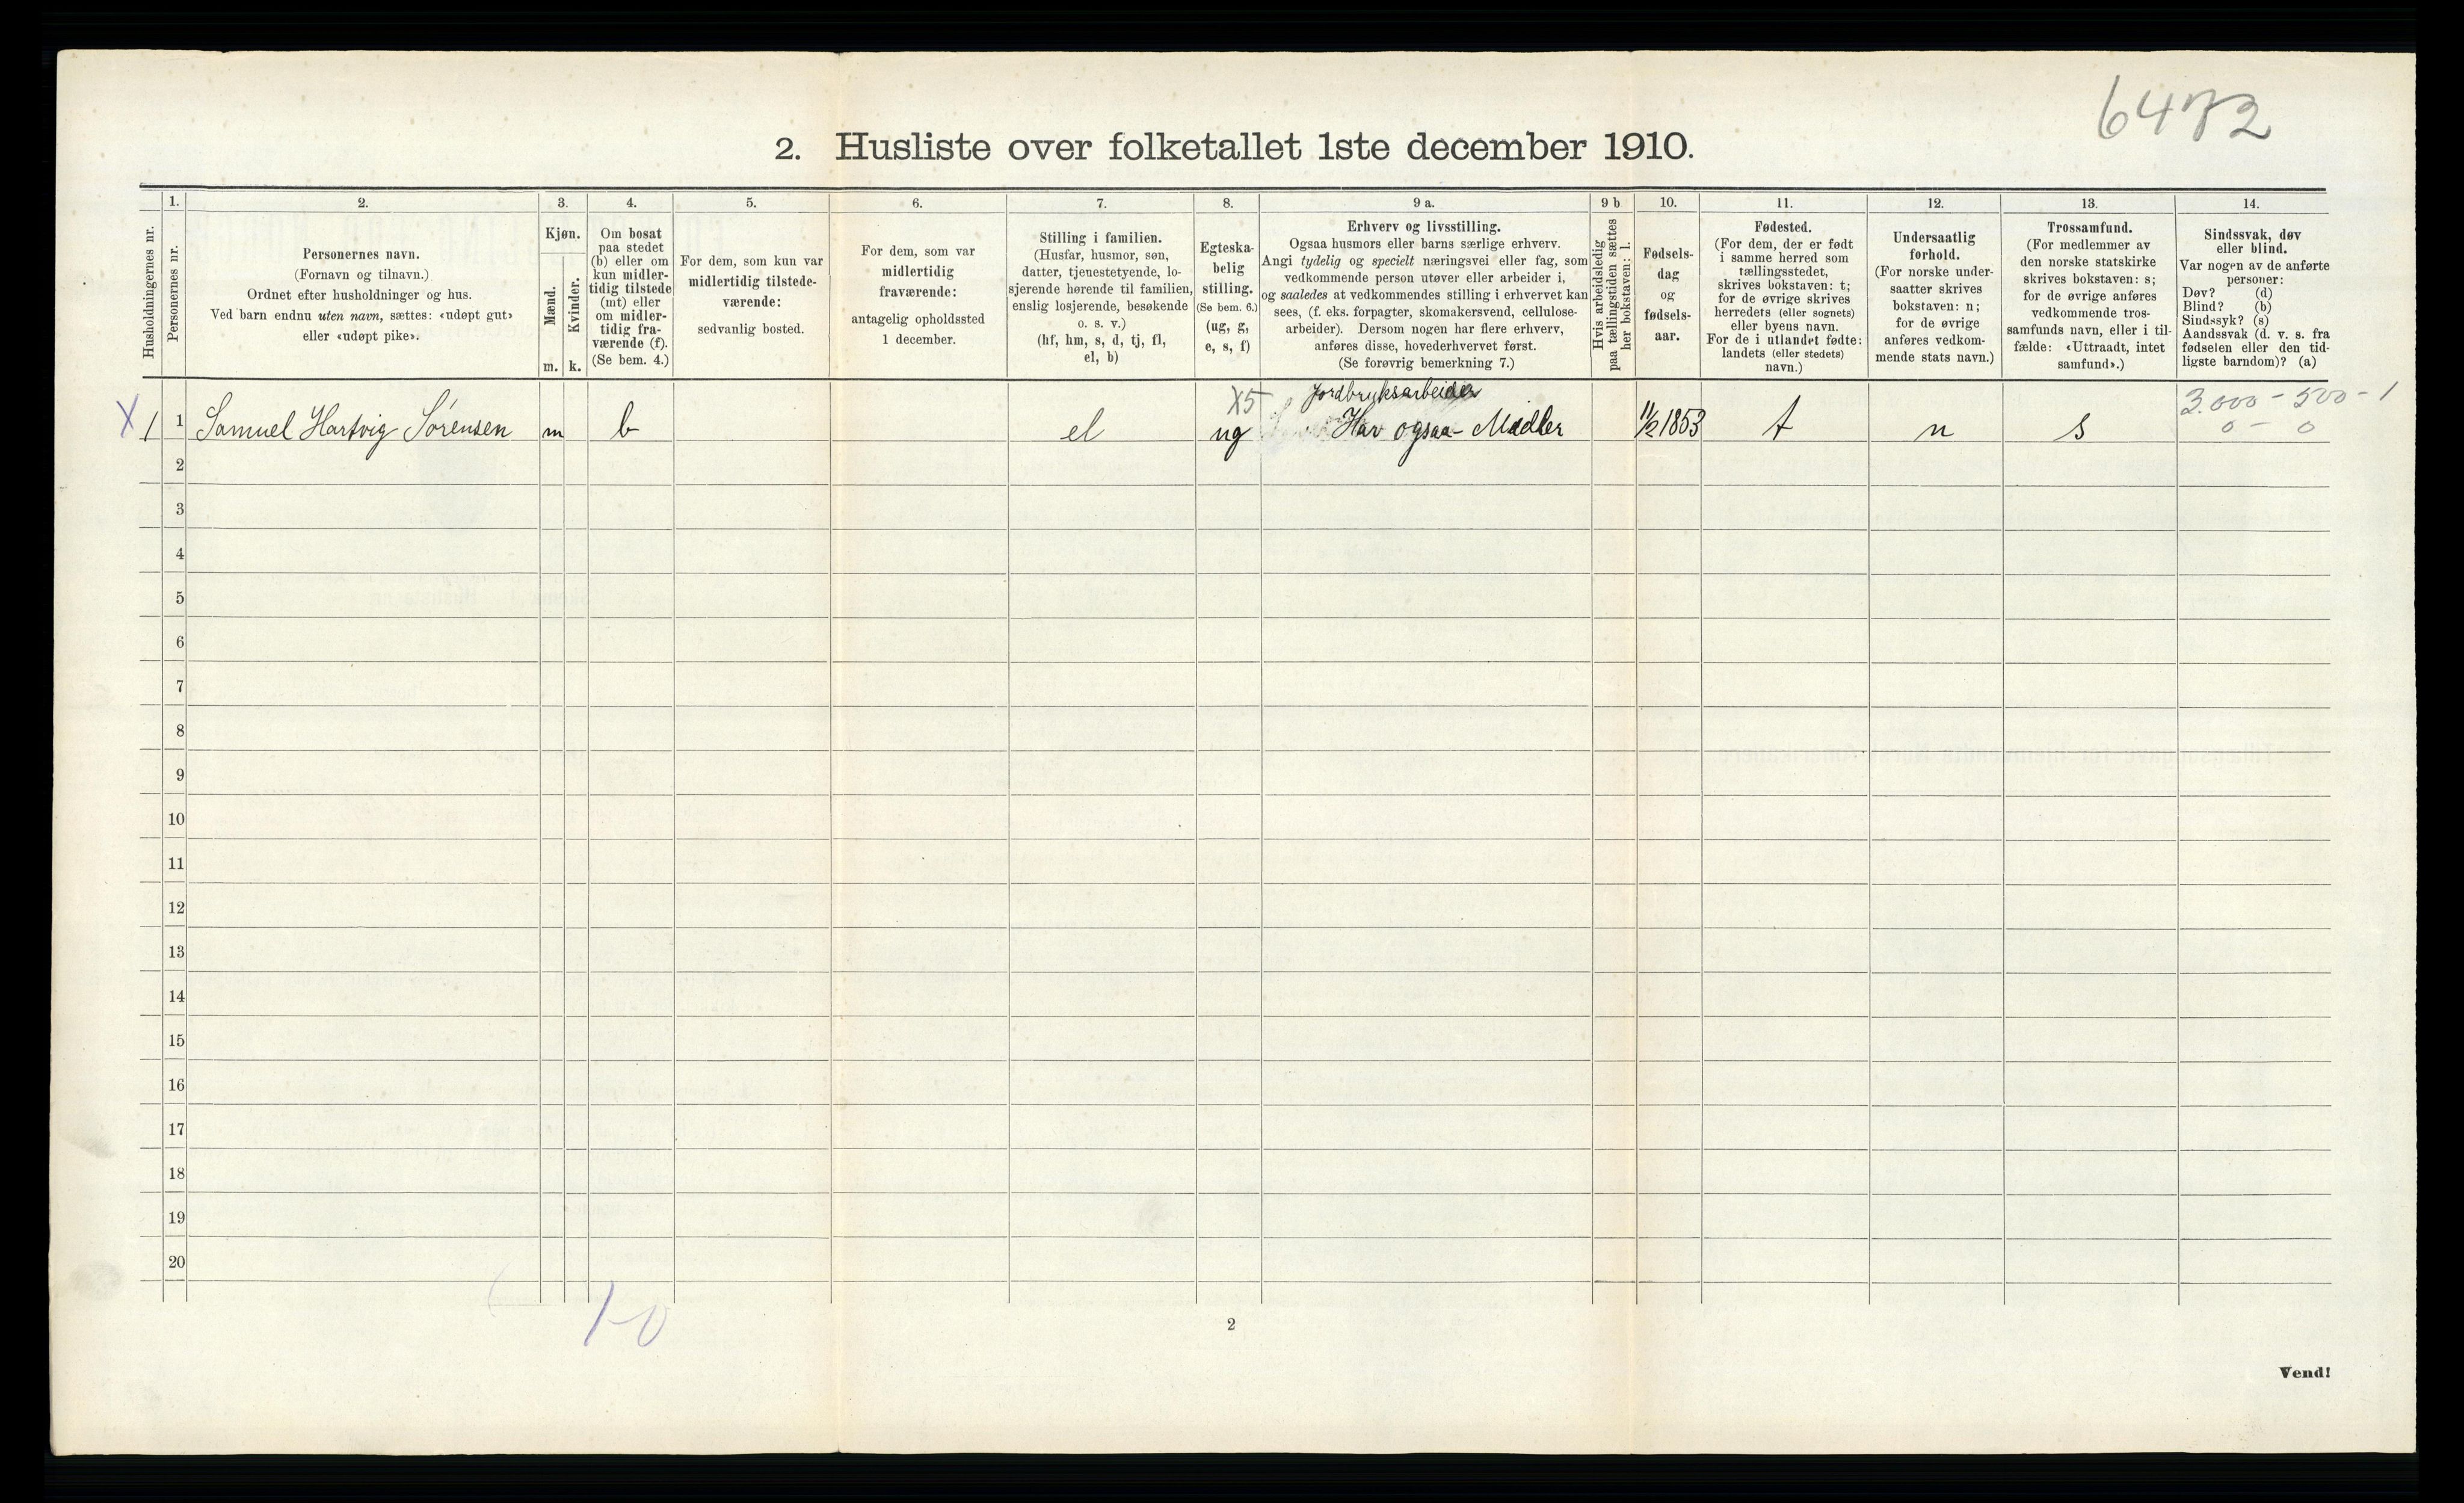 6472
2. Husliste over folketallet 1ste december 1910.
Husholdningernes nr.
1.
Personernes nr.
2.
Personernes navn.
(Fornavn og tilnavn.)
Ordnet efter husholdninger og hus.
Ved barn endnu uten navn, sættes: «udøpt gut»
eller «udøpt pike».
3.
Kjøn.
Mænd.
Kvinder.
m. k.
4.
Om bosat
paa stedet
(b) eller om
kun midler-
tidig tilstede
(mt) eller
om midler-
tidig fra-
værende (f).
(Se bem. 4.)
5.
For dem, som kun var
midlertidig tilstede-
værende:
sedvanlig bosted.
6.
For dem, som var
midlertidig
fraværende:
antagelig opholdssted
1 december.
7.
Stilling i familien.
(Husfar, husmor, søn,
datter, tjenestetyende, lo-
sjerende hørende til familien,
enslig losjerende, besøkende
o. s. v.)
(hf, hm, s, d, tj, fl,
el, b)
8.
Egteska-
belig
stilling.
(Se bem. 6.)
(ug, g,
e, s, f)
9 a.
Erhverv og livsstilling.
Ogsaa husmors eller barns særlige erhverv.
Angi tydelig og specielt næringsvei eller fag, som
vedkommende person utøver eller arbeider i,
og saaledes at vedkommendes stilling i erhvervet kan
sees, (f. eks. forpagter, skomakersvend, cellulose-
arbeider). Dersom nogen har flere erhverv,
anføres disse, hovederhvervet først.
(Se forøvrig bemerkning 7.)
9 b
Hvis arbeidsledig
paa tællingstiden sættes
her bokstaven: l.
10.
Fødsels-
dag
og
fødsels-
aar.
11.
Fødested.
(For dem, der er født
i samme herred som
tællingsstedet,
skrives bokstaven: t;
for de øvrige skrives
herredets (eller sognets)
eller byens navn.
For de i utlandet fødte:
landets (eller stedets)
navn.)
12.
Undersaatlig
forhold.
(For norske under-
saatter skrives
bokstaven: n;
for de øvrige
anføres vedkom-
mende stats navn.)
13.
Trossamfund.
(For medlemmer av
den norske statskirke
skrives bokstaven: s;
for de øvrige anføres
vedkommende tros-
samfunds navn, eller i til-
fælde: «Uttraadt, intet
samfund».)
14.
Sindssvak, døv
eller blind.
Var nogen av de anførte
personer:
Døv? (d)
Blind? (b)
Sindssyk? (s)
Aandssvak (d. v. s. fra
fødselen eller den tid-
ligste barndom)? (a)
X5 Jordbruksarbeider 3.000 - 500 - 1
X 1 1 Samuel Hartvig Sørensen m b el ug Har ogsaa Midler 11/2 1853 t n s 0 - 0
2
3
4
5
6
7
8
9
10
11
12
13
14
15
16
17
18
19
20
1-0
2
Vend!